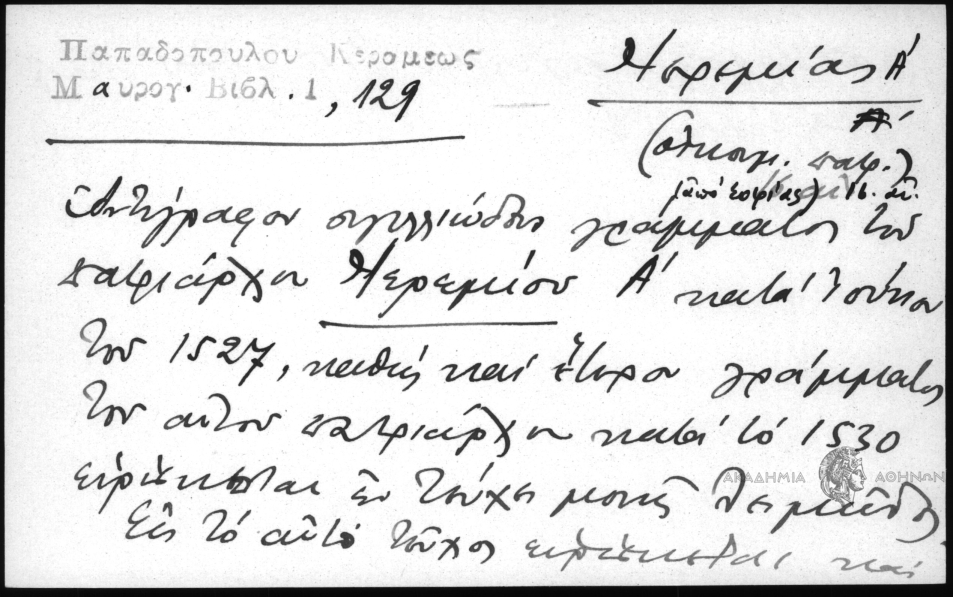 Παπαδοπουλου Κεραμεως
Μαυρογ. Βιβλ. 1, 129
Ἱερεμίας Α΄
Α΄
(οἰκουμ. πατρ.)
(ἀπό Σοφίας) 16. αἰ.
Ἀντίγραφον σιγιλλιώδους γράμματος τοῦ
πατριάρχου Ἱερεμίου Α΄ κατά Ἰούνιον
τοῦ 1527, καθώς καί ἕτερον γράμματος
τοῦ αὐτοῦ πατριάρχου κατά τό 1530
εὑρίσκεται ἐν τεύχει μονῆς
Εἰς τό αὐτό τεῦχος εὑρίσκεται καί
ΑΚΑΔΗΜΙΑ ΑΘΗΝΩΝ